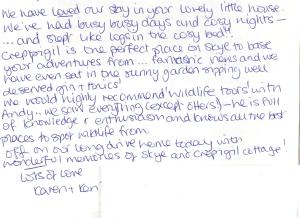 We have loved our stay in your lovely little house.
We've had busy busy days and cosy nights -
... and slept like logs in the cosy bed!!
Creppigil is the perfect place on Skye to base
your adventures from ... fantastic views and we
have even sat in the sunny garden sipping well
deserved gin + tonics!
We would highly recommend 'wildlife tours' with
Andy.. we saw everything (except otters) - he is full
of knowledge + enthusiasm and knows all the best
places to spot wildlife from.
Off on our long drive home today with
wonderful memories of Skye and Crepigil cottage!
Lots of love
Karen + Ken